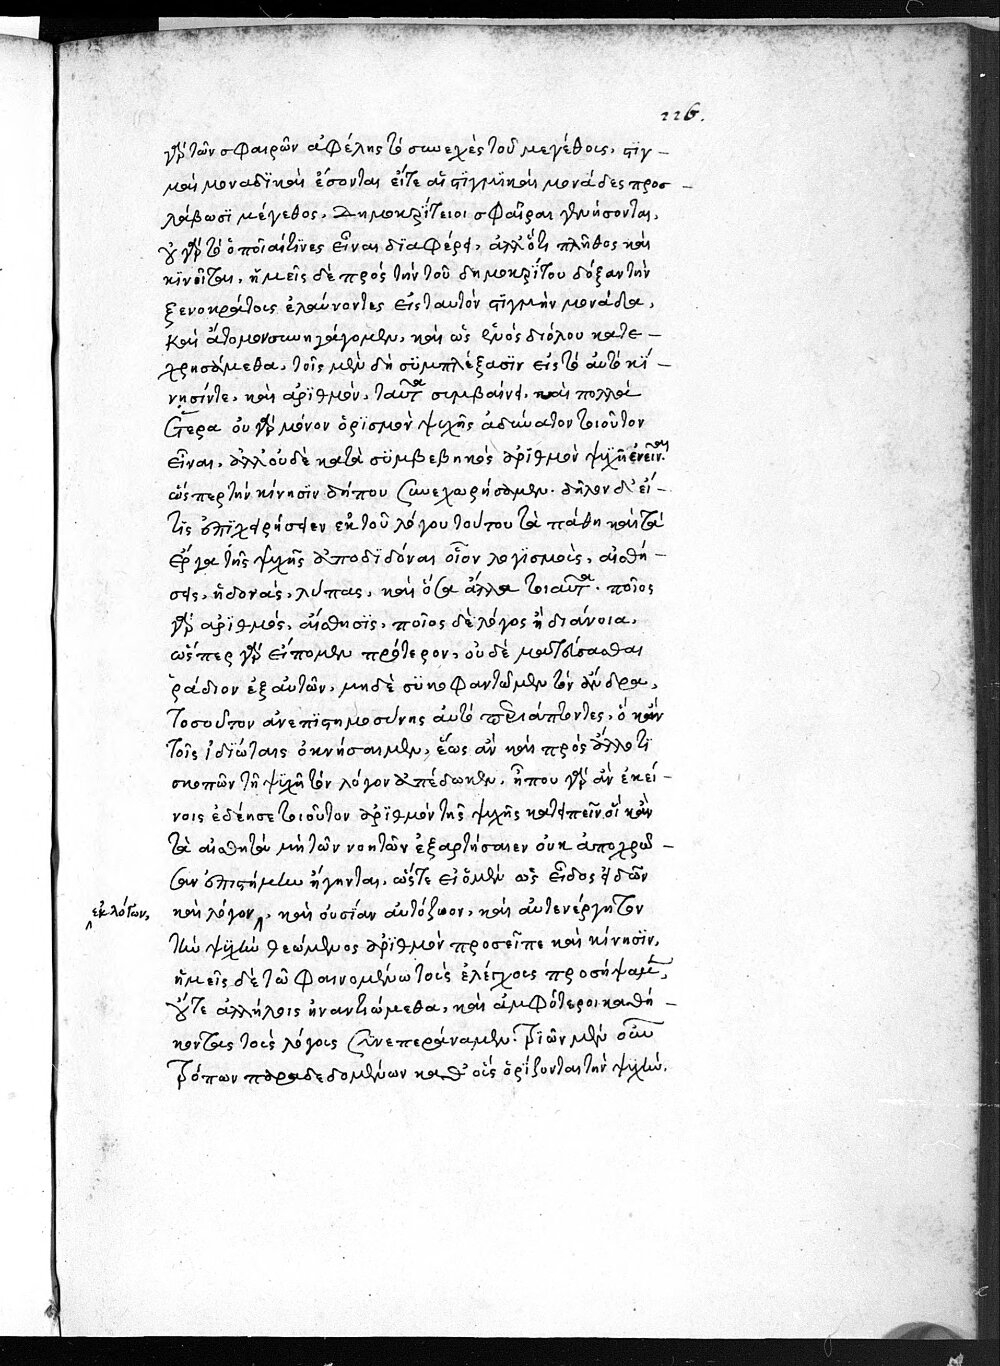 116.
γὰρ τῶν σφαιρῶν ἀφέλης τὸ συνεχὲς τοῦ μεγέθους, στιγ-
μαὶ μοναδικαὶ ἔσονται εἴτε αἱ στιγμικαὶ μονάδες προσ-
λάβωσι μέγεθος, Δημοκρίτειοι σφαῖραι γενήσονται,
οὐ γὰρ τὸ ὁποῖαί τινες εἶναι διαφέρει, ἀλλ' ὅτι πλῆθος καὶ
κινεῖται, ἡμεῖς δὲ πρὸς τὴν τοῦ δημοκρίτου δόξαν τὴν
ξενοκράτους ἐλαύνοντες εἰς ταυτὸν στιγμὴν μονάδα,
καὶ ἄτομον συνηγάγομεν, καὶ ὡς ἑνὸς διόλου κατε-
χρησάμεθα, τοῖς μὲν δὴ συμπλέξασιν εἰς τὸ αὐτὸ κί-
νησίν τε, καὶ ἀριθμόν, ταῦτα συμβαίνει, καὶ πολλὰ
ἕτερα οὐ γὰρ μόνον ὁρισμὸν ψυχῆς ἀδύνατον τοιοῦτον
εἶναι, ἀλλ' οὐδὲ κατὰ συμβεβηκὸς ἀριθμὸν ψυχῆ ἐνεῖναι
ὥσπερ τὴν κίνησιν δήπου συνεχωρήσαμεν. δῆλον δ' εἴ-
τις ἐπιχειρήσειεν ἐκ τοῦ λόγου τούτου τὰ πάθη καὶ τὰ
ἔργα τῆς ψυχῆς ἀποδιδόναι οἷον λογισμοὺς, αἰσθή-
σεις, ἡδονὰς, λύπας, καὶ ὅσα ἄλλα τοιαῦτα. ποῖος
γὰρ ἀριθμὸς, αἴσθησις, ποῖος δὲ λόγος ἢ διάνοια,
ὥσπερ γὰρ εἴπομεν πρότερον, οὐδὲ μαντεύσασθαι
ῥάδιον ἐξ αὐτῶν, μηδὲ συκοφαντῶμεν τὸν ἄνδρα,
τοσοῦτον ἀνεπιστημοσύνης αὐτὸ περιάπτοντες, ὃ κἀν
τοῖς ἰδιώταις ὀκνήσαιμεν, ἕως ἂν καὶ πρὸς ἄλλο τι
σκοπῶν τῆ ψυχῆ τὸν λόγον ἀπέδωκεν, ἦπου γὰρ ἂν ἐκεί-
νοις ἐδέησε τοιοῦτον ἀριθμὸν τῆς ψυχῆς κατειπεῖν οἳ κἂν
τὰ αἰσθητὰ μὴ τῶν νοητῶν ἐξαρτήσαιεν οὐκ ἀποχρῶ-
σαν ἐπιστήμην ἥγηνται, ὥστε εἰ ὁ μὲν ὡς εἶδος εἰδῶν
ἐκ λόγων,
καὶ λόγον, καὶ οὐσίαν αὐτόζωον, καὶ αὐτενέργητον
τὴν ψυχὴν θεώμενος ἀριθμὸν προσεῖπε καὶ κίνησιν,
ἡμεῖς δὲ τῶ φαινομένω τοὺς ἐλέγχους προσήψαμεν,
οὔτε ἀλλήλοις ἠναντιώμεθα, καὶ ἀμφότεροι καθή-
κοντας τοὺς λόγους συνεπεράναμεν. τριῶν μὲν οὖν
τρόπων παραδεδομένων καθ' οὓς ὁρίζονται τὴν ψυχὴν,